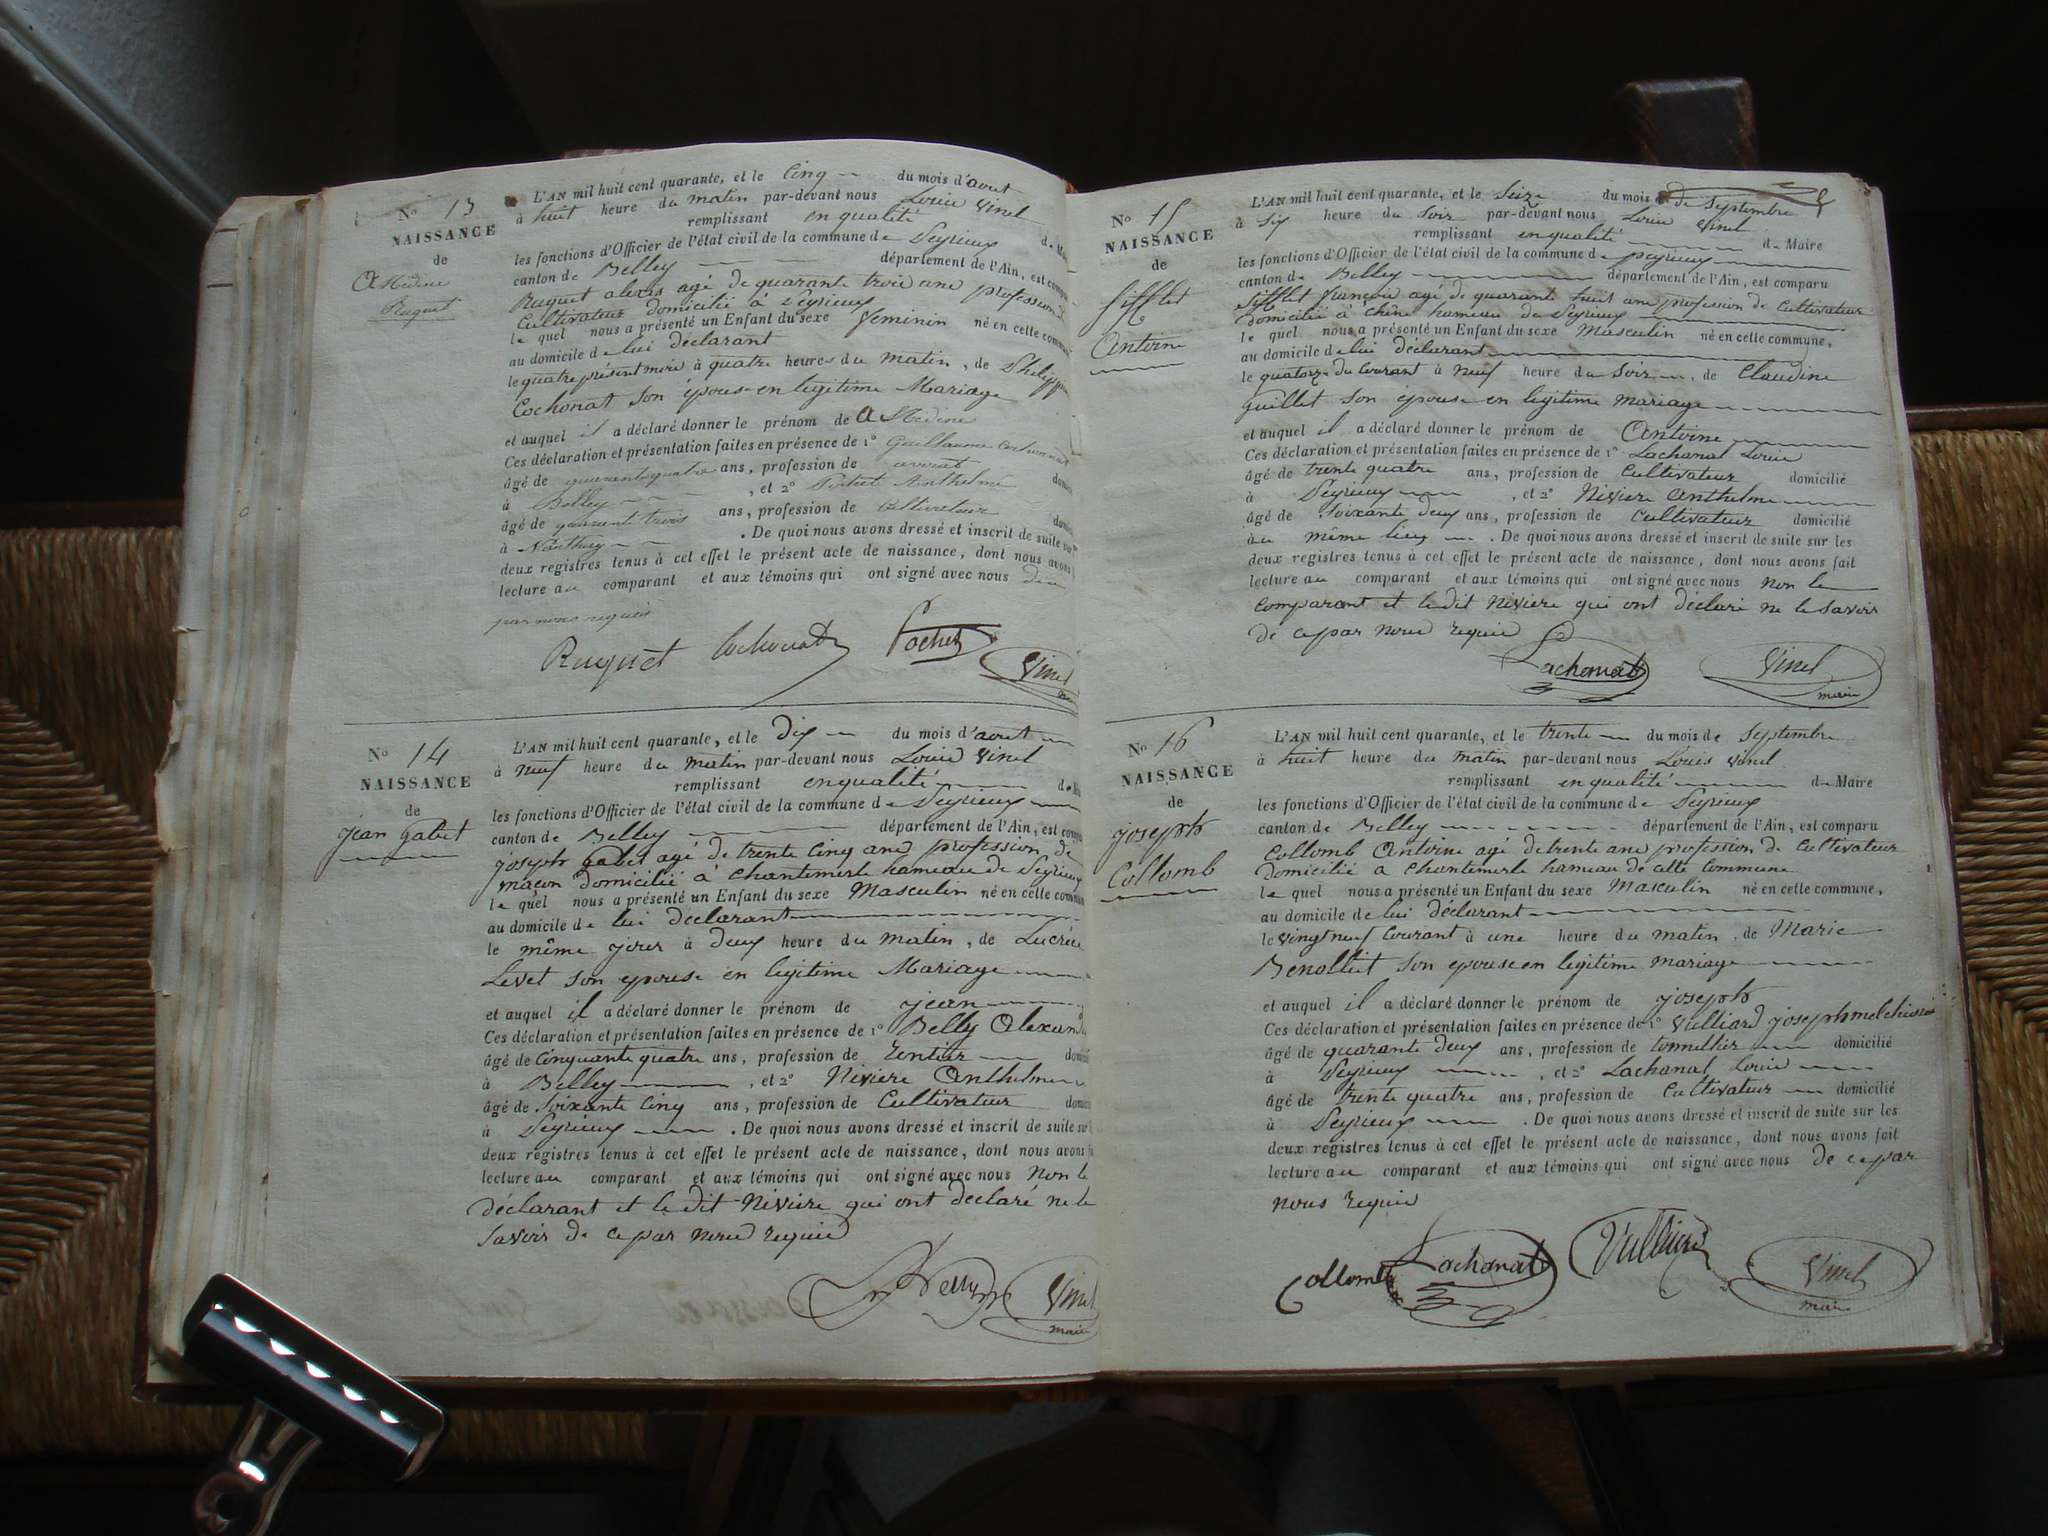 No 13
NAISSANCE
de
Ruquet
L'AN mil huit cent quarante, et le Cinq du mois d'aout
à huit heure du matin par-devant nous Louis Vinel
remplissant en qualité de
les fonctions d'Officier de l'état civil de la commune de Peyrieux
canton de Belley département de l'Ain, est
Ruquet alexis agé de quarante trois ans profession
Cultivateur domicilié à Peyrieux
le quel nous a présenté un Enfant du sexe feminin né en cette
au domicile de lui déclarant
le quatre présent mois à quatre heures du matin, de
Cochonat son épouse en legitime Mariage
et auquel il a déclaré donner le prénom de
Ces déclaration et présentation faites en présence de 1° Guillaume
âgé de quarante quatre ans, profession de avocat
à Belley , et 2° Anthelme
âgé de quarente trois ans, profession de cultivateur
à . De quoi nous avons dressé et inscrit de suite sur
deux registres tenus à cet effet le présent acte de naissance, dont nous avons
lecture au comparant et aux témoins qui ont signé avec nous de ce
par nous requis
Ruquet Cochonat Pochet Vinel
No 14
NAISSANCE
de
jean gabet
L'AN mil huit cent quarante, et le dix du mois d'aout
à neuf heure du matin par-devant nous Louis Vinel
remplissant en qualité de
les fonctions d'Officier de l'état civil de la commune de Peyrieux
canton de Belley département de l'Ain, est
joseph gabet agé de trente cinq ans profession de
maçon domicilié à Chantemerle hameau de Peyrieux
le quel nous a présenté un Enfant du sexe Masculin né en cette
au domicile de lui déclarant
le même jour à deux heure du matin, de
Levet son epouse en legitime Mariage
et auquel il a déclaré donner le prénom de jean
Ces déclaration et présentation faites en présence de 1° Belly
âgé de cinquante quatre ans, profession de Rentier
à Belley , et 2° Niviere Anthelme
âgé de soixante cinq ans, profession de Cultivateur
à Peyrieux . De quoi nous avons dressé et inscrit de suite sur
deux registres tenus à cet effet le présent acte de naissance, dont nous avons
lecture au comparant et aux témoins qui ont signé avec nous non le
déclarant et le dit Niviere qui ont déclaré ne le
savoir de ce par nous requis
Belly Vinel
maire
No 15
NAISSANCE
de
Sifflet
Antoine
L'AN mil huit cent quarante, et le Seize du mois de Septembre
à Six heure du Soir par-devant nous Louis Vinel
remplissant en qualité de Maire
les fonctions d'Officier de l'état civil de la commune de peyrieux
canton de Belley département de l'Ain, est comparu
Sifflet françois agé de quarante huit ans profession de Cultivateur
domicilié à Chêne hameau de Peyrieux
le quel nous a présenté un Enfant du sexe Masculin né en cette commune,
au domicile de lui déclarant
le quatorze du Courant à neuf heure du Soir, de Claudine
Guillet son épouse en legitime mariage
et auquel il a déclaré donner le prénom de Antoine
Ces déclaration et présentation faites en présence de 1° Lachanal Louis
âgé de trente quatre ans, profession de Cultivateur domicilié
à Peyrieux , et 2° Niviere Anthelme
âgé de soixante deux ans, profession de Cultivateur domicilié
au même lieu . De quoi nous avons dressé et inscrit de suite sur les
deux registres tenus à cet effet le présent acte de naissance, dont nous avons fait
lecture au comparant et aux témoins qui ont signé avec nous non le
comparant et le dit Niviere qui ont déclaré ne le savoir
de ce par nous requis
Lachanal Vinel
maire
No 16
NAISSANCE
de
joseph
Collomb
L'AN mil huit cent quarante, et le trente du mois de Septembre
à huit heure du matin par-devant nous Louis Vinel
remplissant en qualité de Maire
les fonctions d'Officier de l'état civil de la commune de Peyrieux
canton de Belley département de l'Ain, est comparu
Collomb Antoine agé de trente ans profession de Cultivateur
domicilié à Chantemerle hameau de cette Commune
le quel nous a présenté un Enfant du sexe Masculin né en cette commune,
au domicile de lui déclarant
le vingt neuf Courant à une heure du matin, de Marie
son epouse en legitime mariage
et auquel il a déclaré donner le prénom de joseph
Ces déclaration et présentation faites en présence de 1° Vulliard joseph
âgé de quarante deux ans, profession de tonnellier domicilié
à Peyrieux , et 2° Lachanal Louis
âgé de trente quatre ans, profession de Cultivateur domicilié
à Peyrieux . De quoi nous avons dressé et inscrit de suite sur les
deux registres tenus à cet effet le présent acte de naissance, dont nous avons fait
lecture au comparant et aux témoins qui ont signé avec nous de ce par
nous requis
Collomb Lachanal Vulliard Vinel
maire